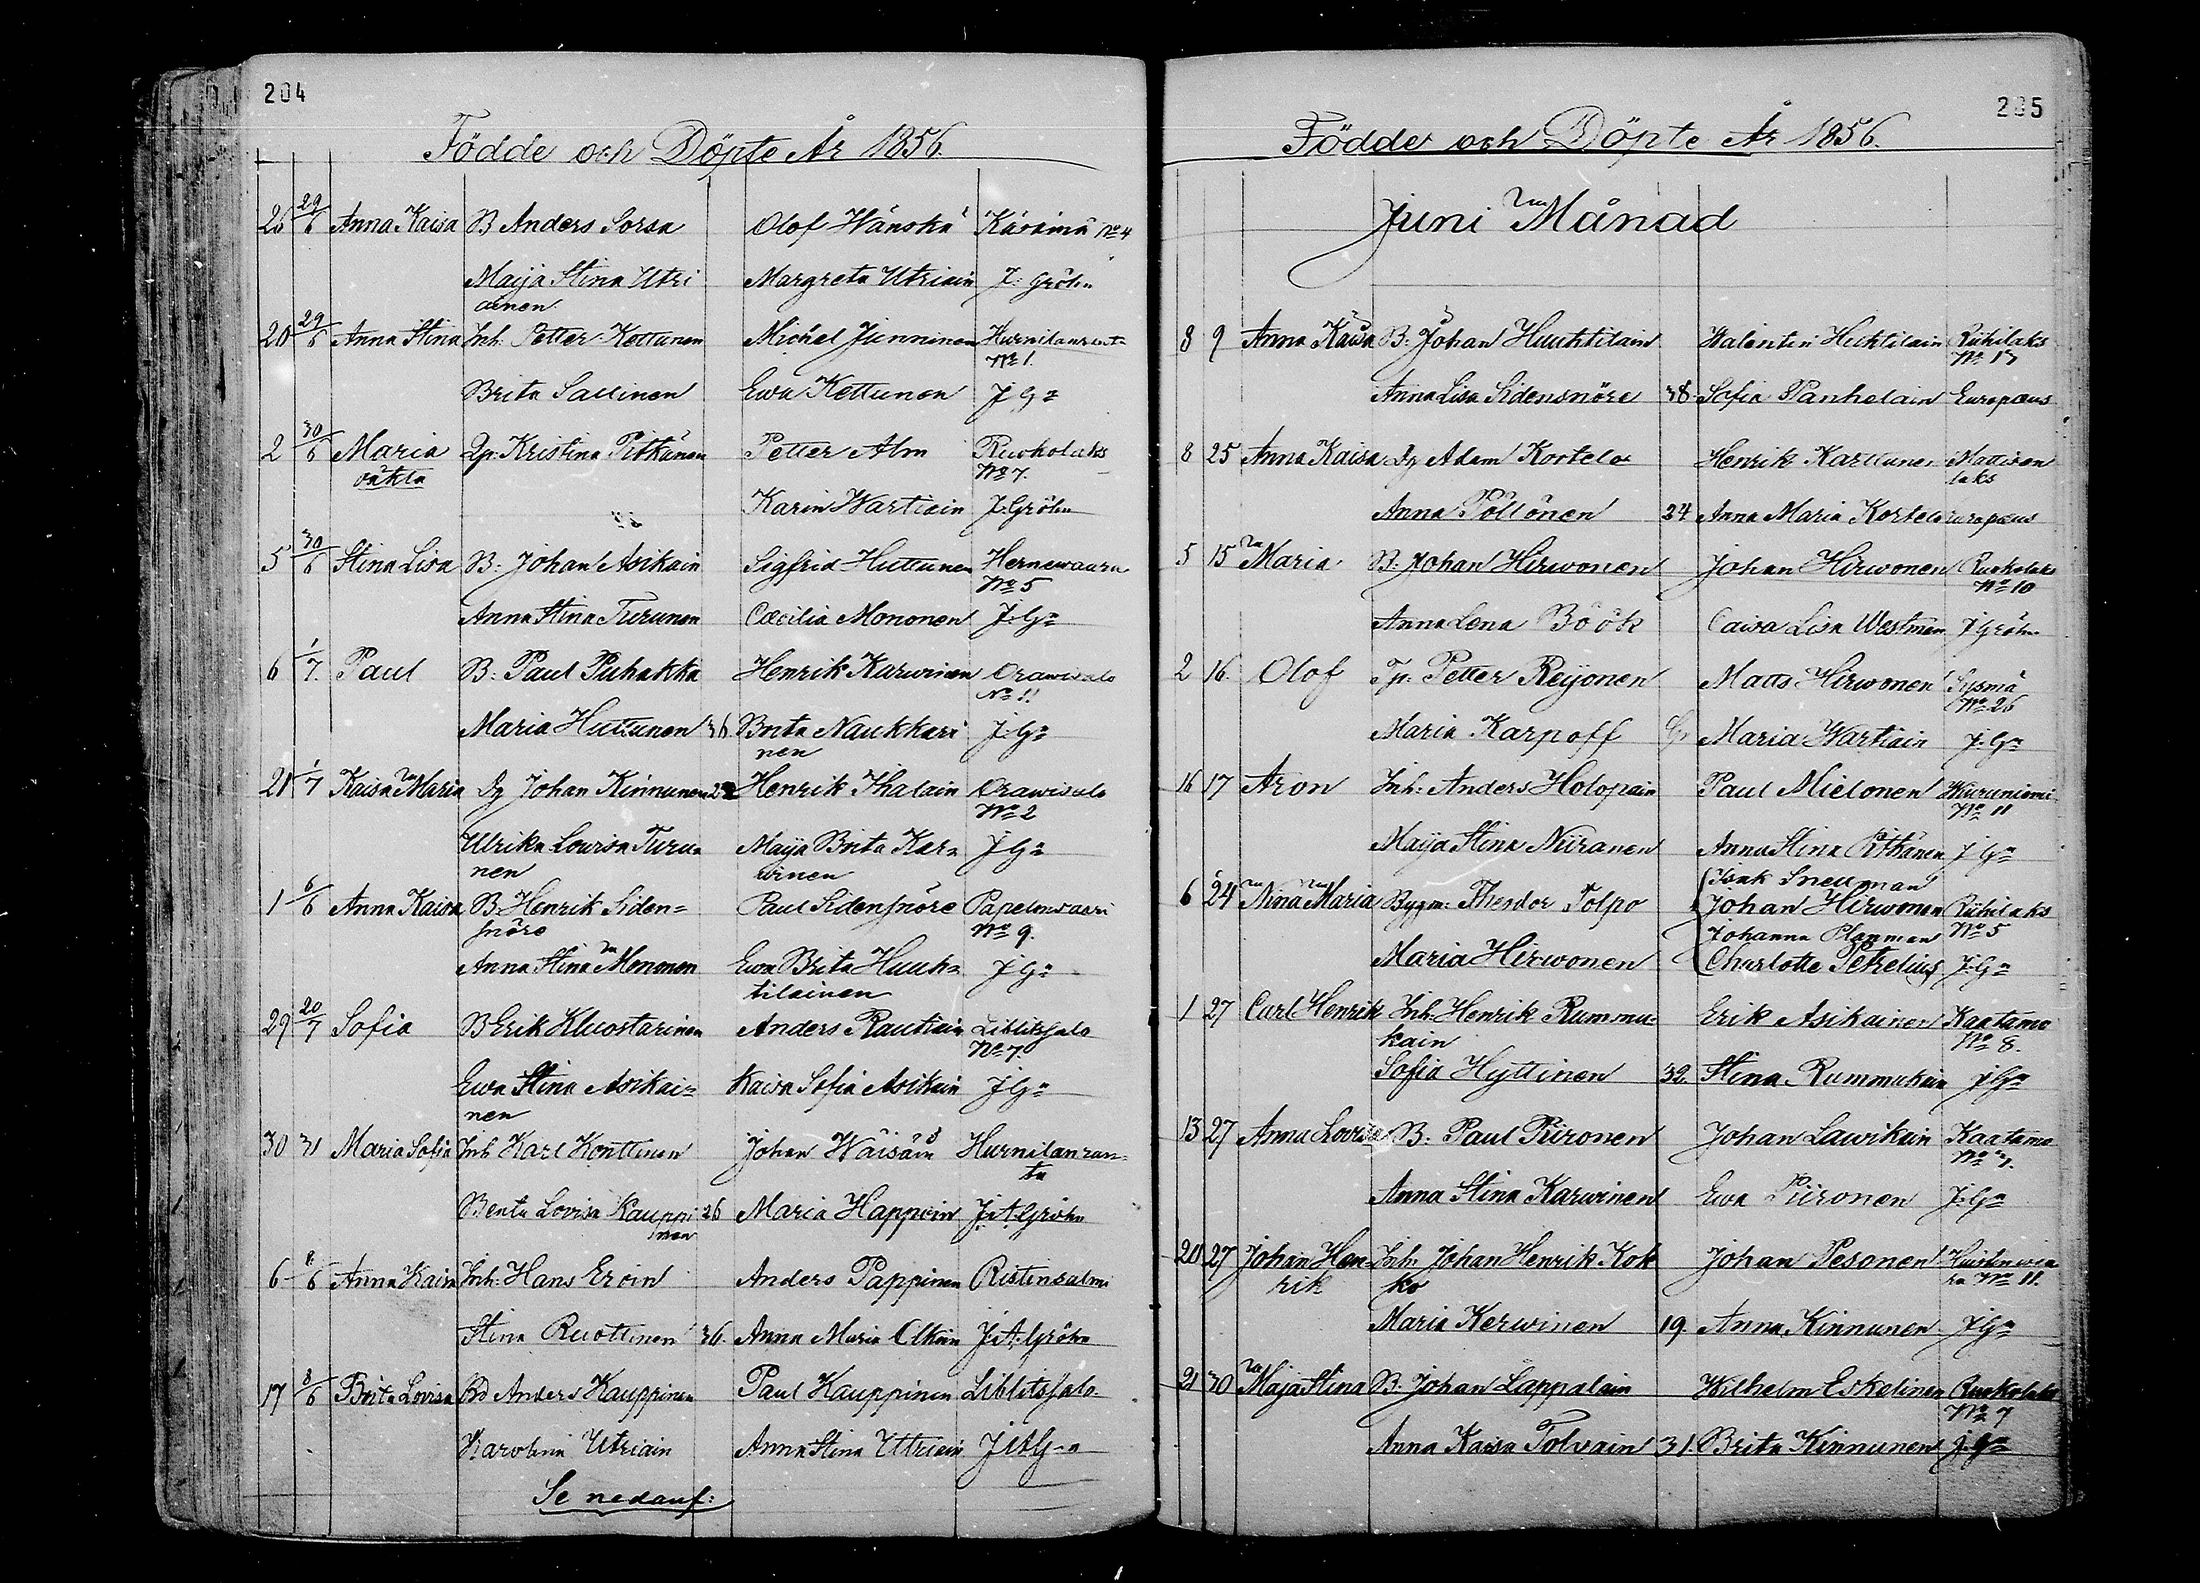 204
Födde och Döpte År 1856.
26 29/6 Anna Kaisa B Anders Sorsa Olof Hänskä Käsämä No 4
Maija Stina Utri Margreta Utriain J. Gröhn
ainen
20 29/6 Anna Stina Inh. Petter Kettunen Michel Junninen Hurnilanranta
No 1.
Brita Sallinen Ewa Kettunen J Gn
2 30/6 Maria Lp. Kristina Pitkänen Petter Alm Ruokolaks
oäkta No 7.
Karin Wartiain J. Gröhn
5 30/6 Stina Lisa B. Johan Asikain Sigfrid Huttunen Hernewaara
No 5
Anna Stina Turunen Cæcilia Mononen J. Gn
6 1/7. Paul B. Paul Puhakka Henrik Karwinen Orawisalo
No 11
Maria Huttunen 36. Brita Naukkari J. Gn
nen
21 1/7 Kaisa Maria Lg Johan Kinnunen 22 Henrik Ihalain Orawisalo
No 2
Ulrika Lowisa Turu= Maija Brita Kar= J Gn
nen winen
1 6/6 Anna Kaisa B. Henrik Siden= Paul Sidensnöre Papelonsaari
snöre No 9.
Anna Stina Mononen Ewa Brita Huuh= J Gn
tilainen
29 20/7 Sofia B Erik Kluostarinen Anders Rautiain Liblitsalo
No 7.
Ewa Stina Asikai= Kaisa Sofia Asikain J Gn
nen
30 31 Maria Sofia Inh Karl Konttinen Johan Wäisäin Hurnilanran=
ta
Beata Lovisa Kauppi 26 Maria Happoin J. A. Gröhn
nen
6 8/6 Anna Kaisa Inh. Hans Eroin Anders Pappinen Ristinsalmi
Stina Ruottinen 36. Anna Maria Olkin J. A. Gröhn
17 8/6 Brita Lovisa Bd Anders Kauppinen Paul Kauppinen Liblitsalo
Karolina Utriain Anna Stina Utriain J A G-n
Se nedanf:
205
Födde och Döpte År 1856.
Juni Månad
8 9 Anna Kaisa B. Johan Huuhtilain Walentin Huhtilain Riihilaks
No 17
Anna Lisa Sidensnöre 38. Sofia Panhelain Europæus
8 25 Anna Kaisa Lg Adam Kortela Henrik Karttunen Mattisen
laks
Anna Pöllönen 24 Anna Maria Kortela Europæus
5 15 Maria B. Johan Hirwonen Johan Hirwonen Ruokolaks
No 10
Anna Lena Böök Caisa Lisa Westman J Gröhn
2 16. Olof Tp. Petter Reijonen Matts Hirwonen Sysmä
No 26
Maria Karpoff Maria Wartiain J. Gn
16 17 Aron Inh. Anders Holopain Paul Mielonen Kuruniemi
No 11
Maija Stina Niiranen Anna Stina Pitkänen J Gn
Isak Snellman
6 24 Nina Maria Byggm. Theodor Tolpo Johan Hirwonen Riihilaks
Johanna Planman No 5
Maria Hirwonen Charlotte Petrelius J. Gn
1 27 Carl Henrik Inh. Henrik Rummu= Erik Asikainen Kaatamo
kain No 8.
Sofia Hyttinen 32. Stina Rummukain J Gn
13 27 Anna Lovisa B. Paul Piironen Johan Lawikain Kaatamo
No 7.
Anna Stina Karwinen Ewa Piironen J. Gn
20 27 Johan Hen= Inh. Johan Henrik Kok Johan Pesonen
rik ko No 11.
Maria Kerwinen 19. Anna Kinnunen J Gn
21 30 Maja Stina B. Johan Lappalain Wilhelm Eskelinen Ruokolaks
No 7
Anna Kaisa Tolvain 31. Brita Kinnunen J. Gn